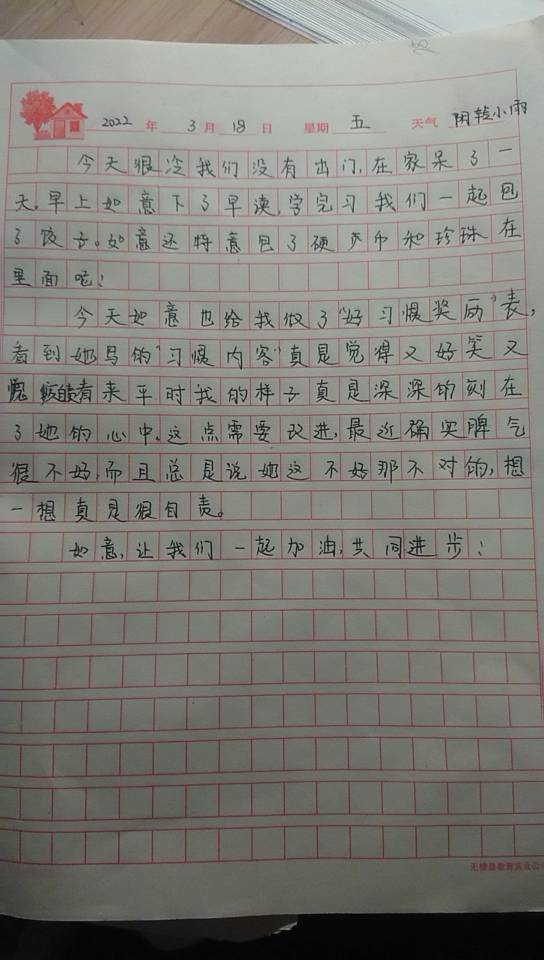 2022 年 3 月 18 日 星期 五 天气 阴转小雨
今天很冷我们没有出门,在家呆了一
天。早上如意下了早读,学完习我们一起包
了饺子。如意还特意包了硬币和珍珠在
里面呢!
今天如意也给我做了“好习惯奖励”表,
看到她写的“习惯内容”真是觉得又好笑又
愧 看来平时我的样子真是深深的刻在
了她的心中。这点需要改进,最近确实脾气
很不好,而且总是说她这不好那不对的,想
一想真是很自责。
如意,让我们一起加油,共同进步!
无棣县教育实业公